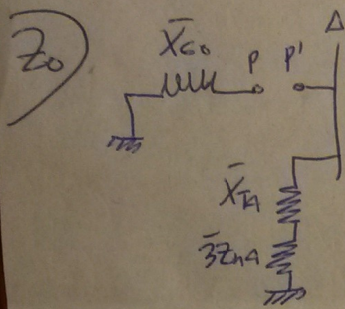 Z₀
X̄G0
P P'
A
X̄TA
3Z̄nA